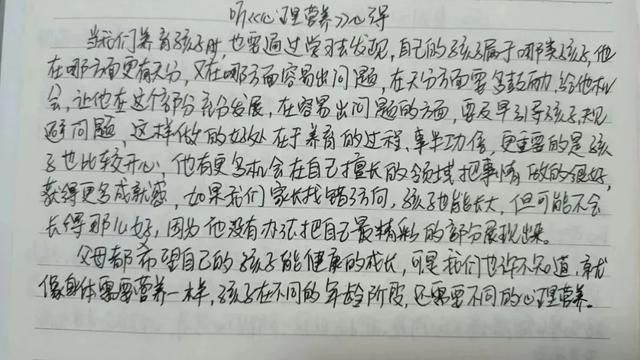 听《心理营养》心得
当我们养育孩子时也要通过学习去发现,自己的孩子属于哪类孩子,他
在哪方面更有天分,又在哪方面容易出问题,在天分方面要多鼓励,给他机
会,让他在这个部分充分发展,在容易出问题的方面,要及早引导孩子,规
避问题,这样做的好处在于养育的过程,事半功倍,更重要的是孩
子也比较开心,他有更多机会在自己擅长的领域把事情做的很好,
获得更多成就感,如果我们家长找错方向,孩子也能长大,但可能不会
长得那么好,因为他没有办法把自己最精彩的部分展现出来。
父母都希望自己的孩子能健康的成长,可是我们也许不知道,就
像身体需要营养一样,孩子在不同的年龄阶段,还需要不同的心理营养。